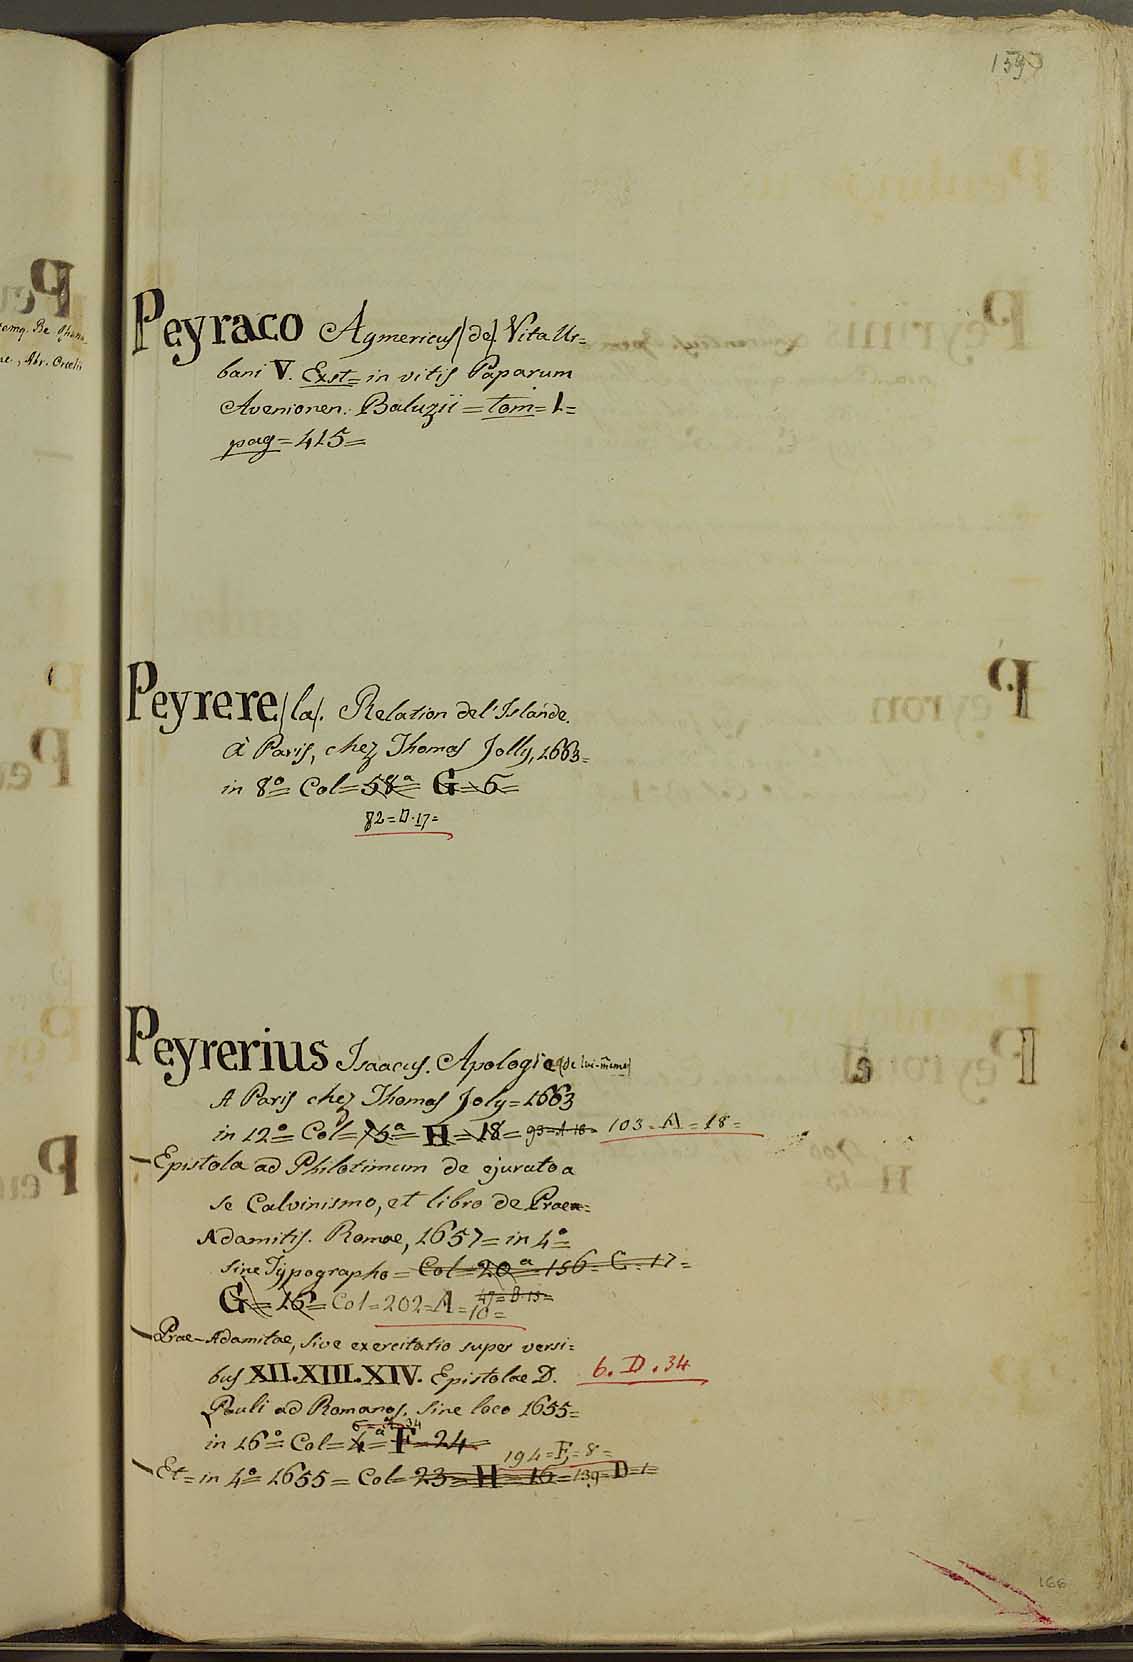 Peyraco Aymericus (de). Vita Ur=
bani V. Exst= in vitis Paparum
Avenionen. Baluzii = tom= 1.=
pag= 415=
Peyrere (la). Relation de l'Islande.
à Paris, chez Thomas Jolly, 1663=
in 8º= Col= 58ª= G= 6=
82= D. 17=
Peyrerius Isaacus. Apologie (de lui-même)
A Paris chez Thomas Joly= 1663
in 12º= Col= 76ª= H= 18= 93= A 18= 103= A= 18=
Epistola ad Philotimum de ejurato a
se Calvinismo, et libro de Prae=
Adamitis. Romae, 1657= in 4º=
sine Typographo= Col= 20ª= 156= C= 17=
G= 16= Col= 202= A= 10= 47= D. 13=
Prae-Adamitae, sive exercitatio super versi=
bus XII. XIII. XIV. Epistolae D. 6. D. 34
Pauli ad Romanos. sine loco 1655=
in 16º= Col= 4ª= F= 24=
194= F,= 8=
Et= in 4º= 1655= Col= 23= H= 16= 139= D= 1=
166
Peyrinis
Peyron